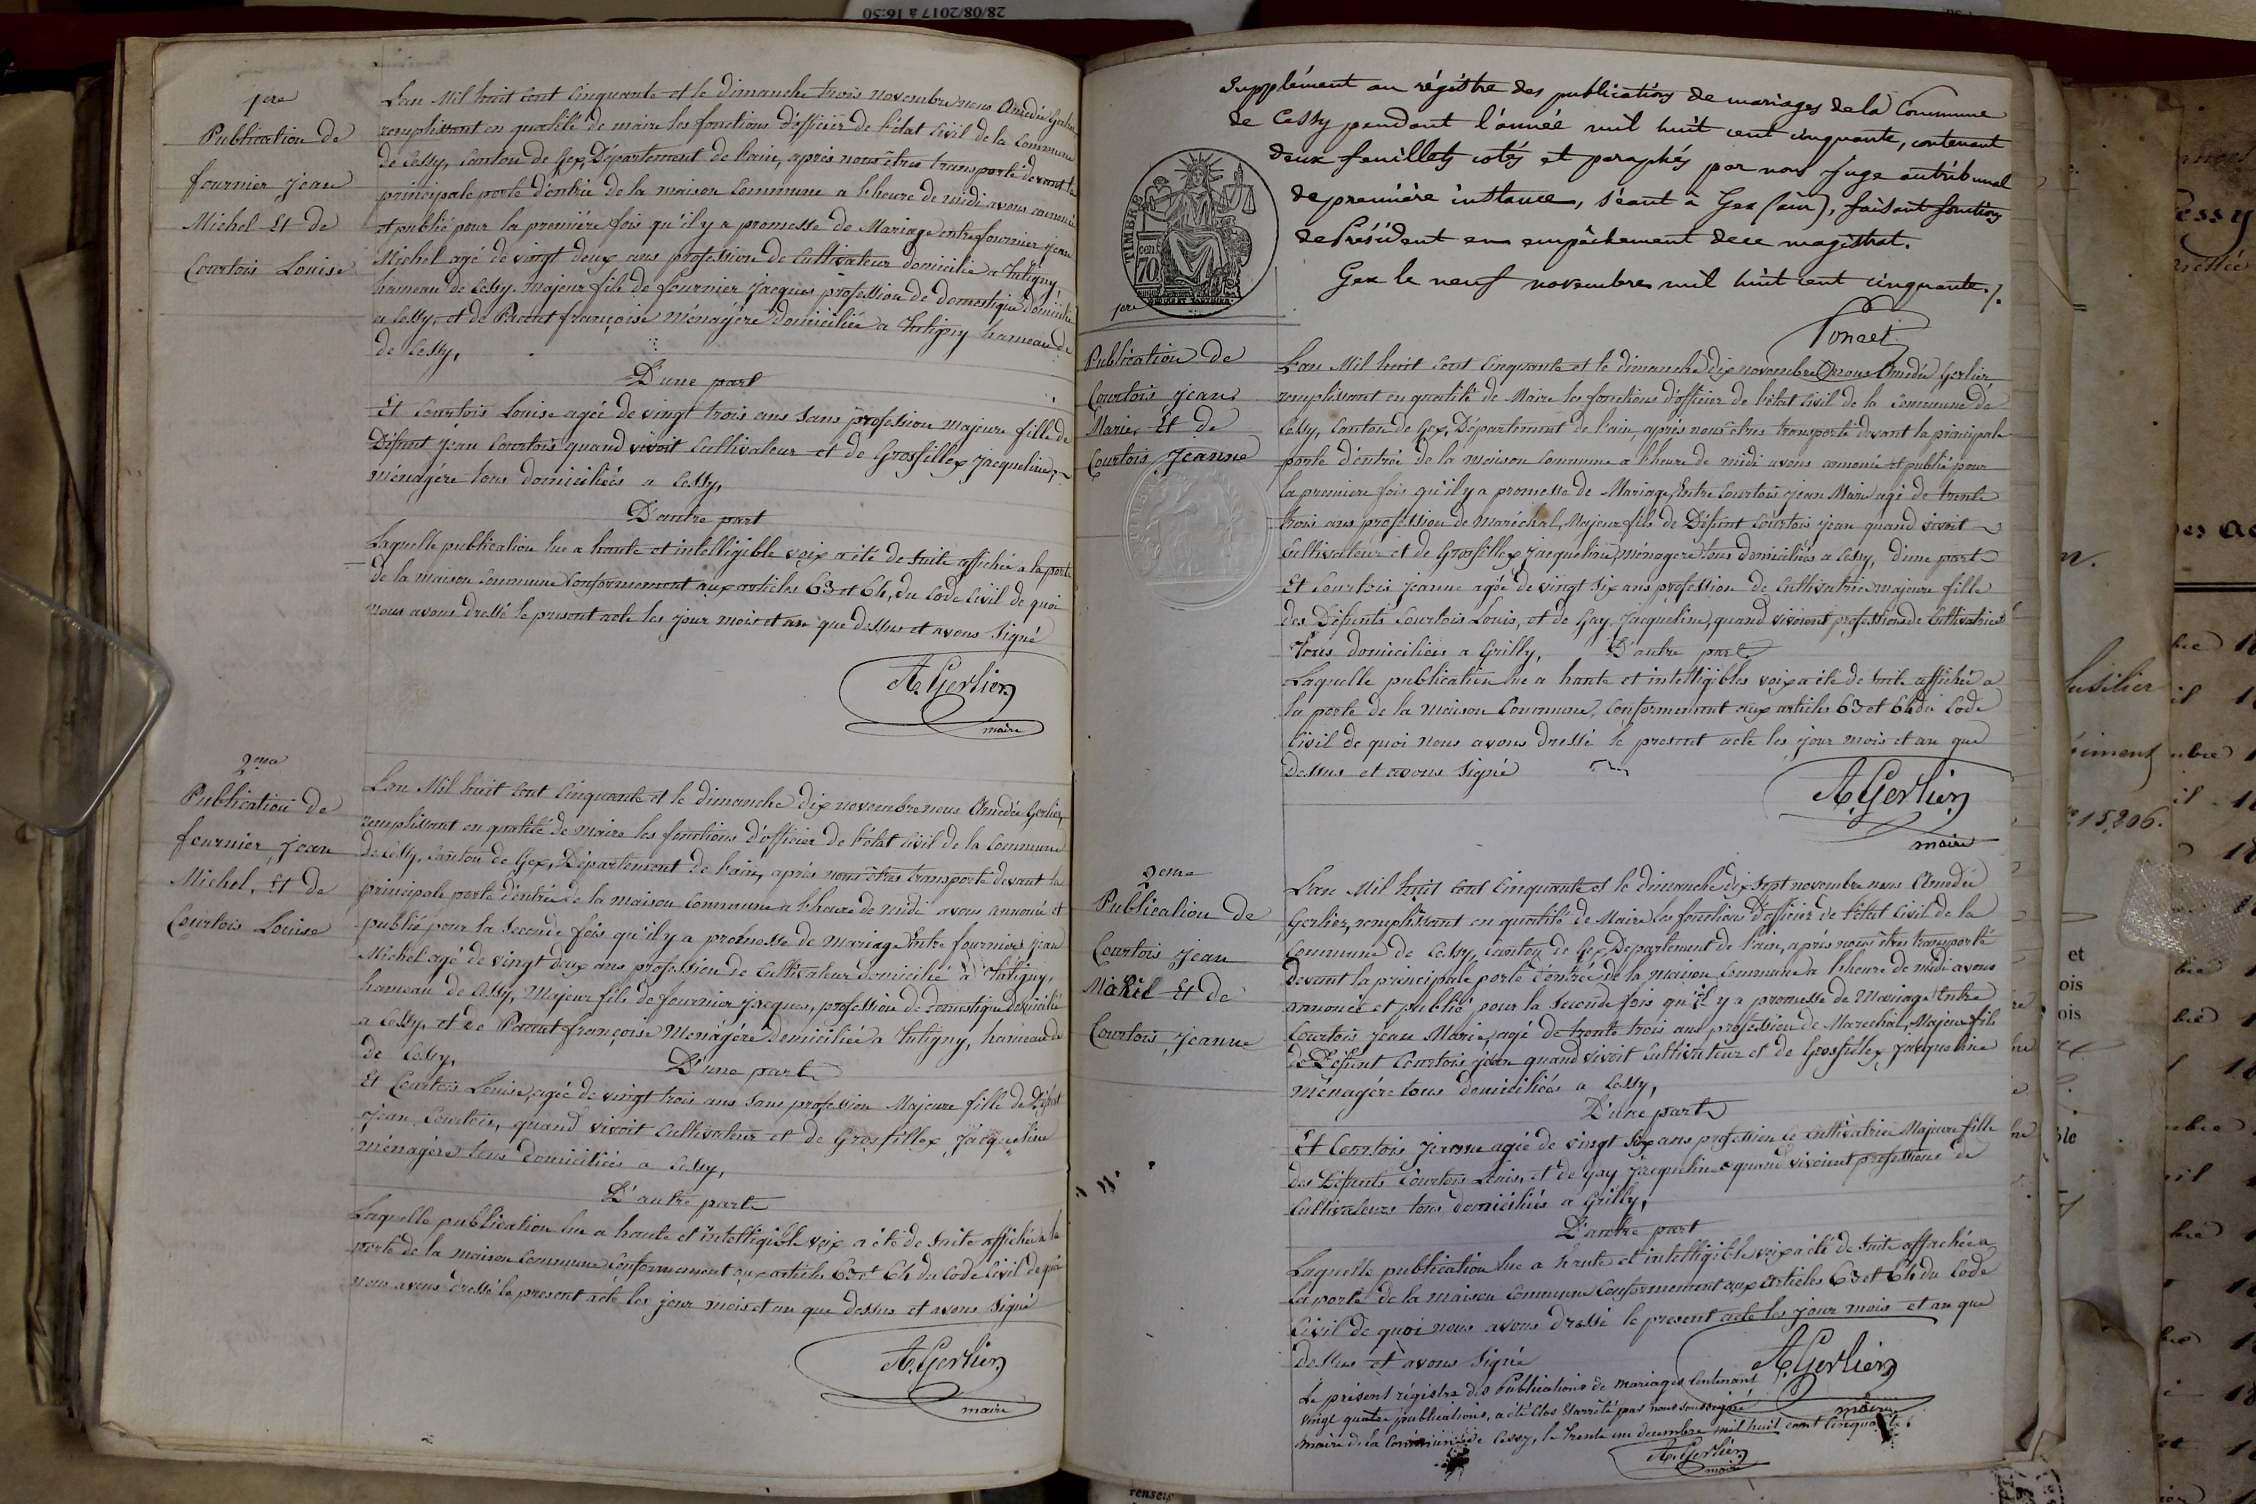 28/08/2017 à 16:50
1ere
Publication de
fournier jean
Michel Et de
Courtois Louise
L'an Mil huit cent Cinquante et le dimanche trois novembre nous Amédée Gerlier
remplissant en qualité de maire les fonctions d'officier de l'état Civil de la Commune
de Cessy, Canton de Gex, Département de l'ain, après nous êtres transporté devant la
principale porte d'entrée de la maison Commune a l'heure de midi avons annoncé
et publié pour la première fois qu'il y a promesse de Mariage entre fournier jean
Michel agé de vingt deux ans profession de Cultivateur domicilié a Tutigny,
hameau de Cessy, Majeur fils de fournier Jacques profession de domestique domicilié
a Cessy, et de françoise Ménagére domiciliée a Tutigny hameau de
de Cessy,
D'une part
Et Courtois Louise agée de vingt trois ans sans profession majeure fille de
Défunt jean Courtois quand vivoit Cultivateur et de Grosfillex jacqueline,
ménagére tous domiciliées a Cessy,
D'autre part
Laquelle publication lue a haute et intelligible voix a été de suite affichée a la porte
de la maison Commune Conformement aux articles 63 et 64, du Code Civil de quoi
nous avons dressé le present acte les jour mois et an que dessus et avons Signé
A. Gerlier
maire
2me
Publication de
fournier, jean
Michel, Et de
Courtois Louise
L'an Mil huit cent Cinquante et le dimanche dix novembre nous Amédée Gerlier,
remplissant en qualité de maire les fonctions d'officier de l'état civil de la Commune
de Cessy, Canton de Gex, Département de l'ain, après nous êtres transporté devant la
principale porte d'entrée de la maison Commune a l'heure de midi avons annoncé et
publié pour la Seconde fois qu'il y a promesse de mariage Entre fournier jean
Michel agé de vingt deux ans profession de Cultivateur domicilié a Tutigny,
hameau de Cessy, Majeur fils de fournier jacques, profession de domestique domicilié
a Cessy, et de françoise Ménagére domiciliée a Tutigny, hameau de
de Cessy,
D'une part
Et Courtois Louise, agée de vingt trois ans sans profession Majeure fille de Défunt
jean Courtois, quand vivoit Cultivateur et de Grosfillex jacqueline
ménagére tous domiciliées a Cessy,
D'autre part
Laquelle publication lue a haute et intelligible voix a été de suite affichée a la
porte de la maison Commune Conformement aux articles 63 et 64 du Code Civil de quoi
nous avons dressé le present acte les jour mois et an que dessus et avons Signé
A. Gerlier
maire
Supplément au régistre des publications de mariages de la Commune
de Cessy pendant l'année mil huit cent cinquante, contenant
deux feuillets cotés et paraphés par nous juge au tribunal
de première instance, séant à Gex (ain), faisant fonctions
de Président en empêchement de ce magistrat.
Gex le neuf novembre mil huit cent cinquante./.
Poncet
TIMBRE
70 cent
1ere
Publication de
Courtois jean
Marie, Et de
Courtois Jeanne
L'an Mil huit Cent Cinquante et le dimanche dix novembre nous Amédée Gerlier
remplissant en qualité de Maire les fonctions d'officier de l'état Civil de la Commune de
Cessy, Canton de Gex, Département de l'ain, après nous êtres transporté devant la principale
porte d'entrée de la maison Commune a l'heure de midi avons annoncé et publié pour
la premiere fois qu'il y a promesse de Mariage, Entre Courtois jean Marie agé de trente
trois ans profession de Maréchal, Majeur fils de Défunt Courtois jean quand vivoit
Cultivateur et de Grosfillex, jacqueline, ménagere tous domiciliées a Cessy, d'une part
Et Courtois jeanne agée de vingt six ans profession de Cultivatrice majeure fille
des Défunts Courtois Louis, et de Gay, jacqueline, quand vivoient professions de Cultivatrices
Tous domiciliées a Grilly, D'autre part
Laquelle publication lue a haute et intelligibles voix a été de suite affichée a
la porte de la Maison Commune, Conformement aux articles 63 et 64 du Code
Civil de quoi nous avons dressé le present acte les jour mois et an que
dessus et avons Signé
A. Gerlier
maire
2eme
Publication de
Courtois jean
Et de
Courtois, jeanne
L'an Mil huit cent Cinquante et le dimanche dix Sept novembre nous Amédée
Gerlier, remplissant en qualité de Maire les fonctions d'officier de l'état Civil de la
Commune de Cessy, Canton de Gex Departement de l'ain, après nous êtres transporté
devant la principale porte d'entrée de la maison Commune a l'heure de midi avons
annoncé et publié pour la Seconde fois qu'il y a promesse de Mariage Entre
Courtois jean Marie, agé de trente trois ans profession de Marechal, Majeur fils
de Défunt Courtois jean quand vivoit Cultivateur et de Grosfillex, jacqueline
ménagére tous domiciliées a Cessy,
D'une part
Et Courtois jeanne agée de vingt six ans profession de Cultivatrice Majeure fille
des Défunts Courtois Louis, et de Gay jacqueline quand vivoient professions de
Cultivateurs tous domiciliés a Grilly,
D'autre part
Laquelle publication lue a haute et intelligible voix a été de suite affachée a
la porte de la maison Commune Conformement aux Articles 63 et 64 du Code
Civil de quoi nous avons dressé le present acte les jour mois et an que
dessus et avons Signé
A. Gerlier
maire
Le présent régistre des Publications de mariages Contenant
vingt quatre publications, a été Clos et arrêté par nous soussigné
maire de la Commune de Cessy, le trente un decembre mil huit cent Cinquante.
A. Gerlier
maire
fusilier
15,206.
et
ois
ois